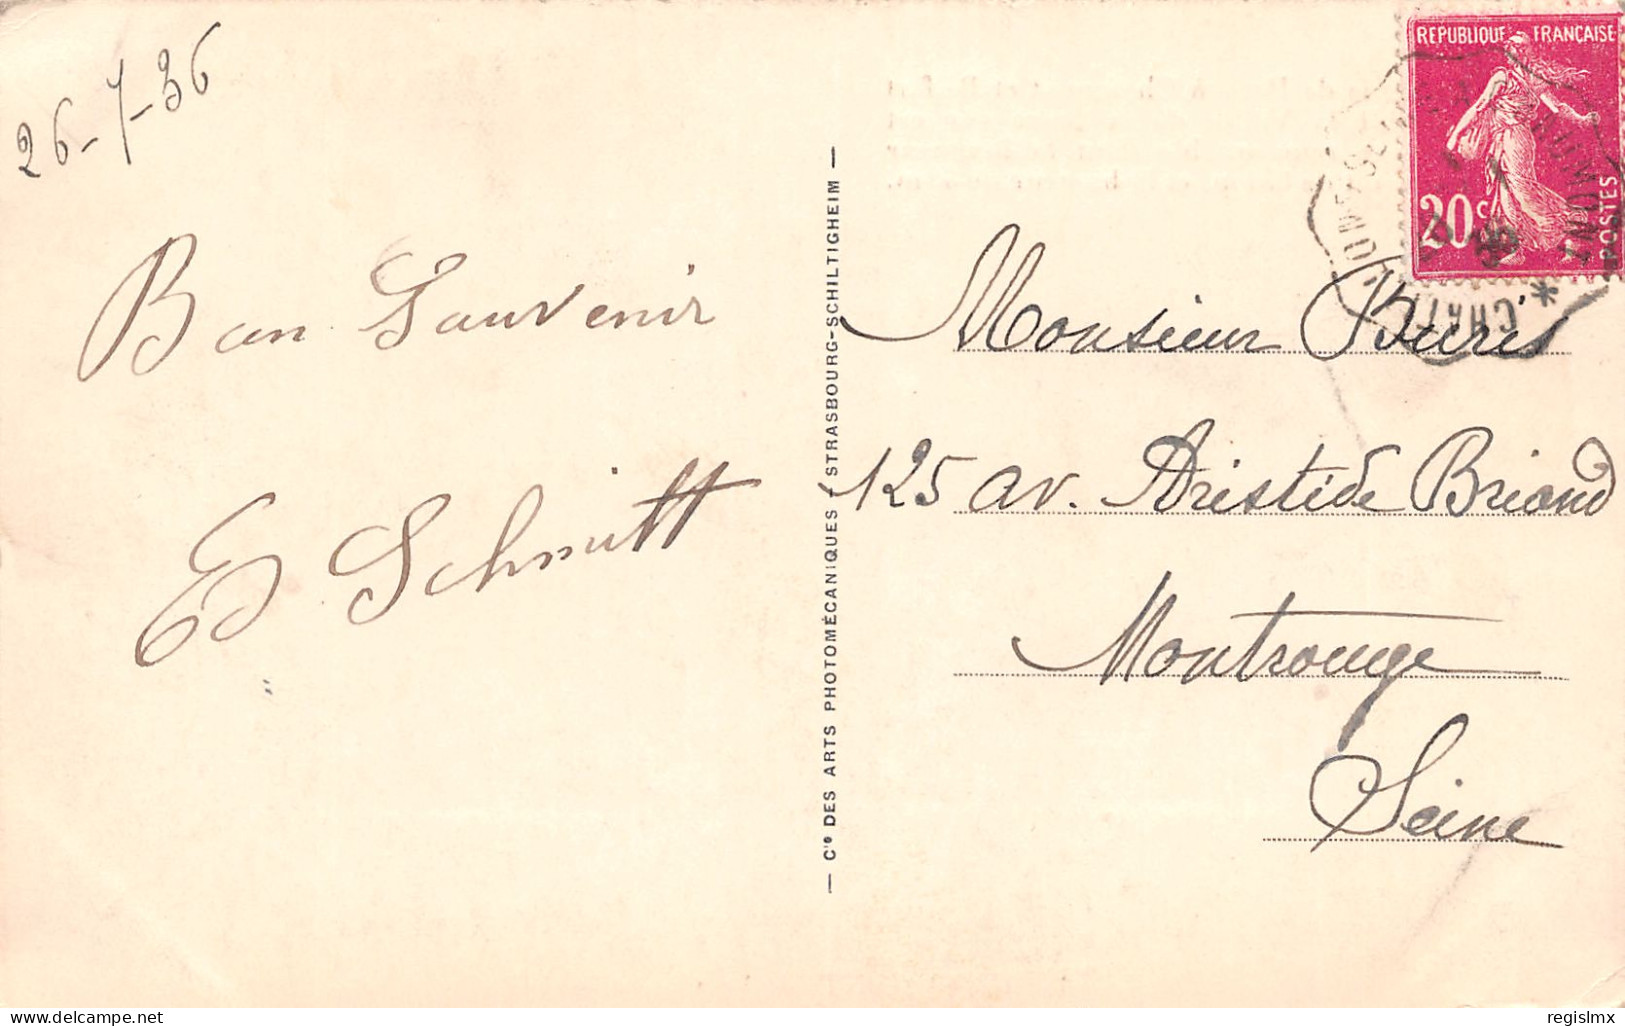 26-7-36
Bon Souvenir
E Schmitt
— Cie DES ARTS PHOTOMÉCANIQUES / STRASBOURG-SCHILTIGHEIM —
REPUBLIQUE FRANÇAISE
20c
POSTES
Monsieur
125 av. Aristide Briand
Montrouge
Seine
www.delcampe.net
regislmx